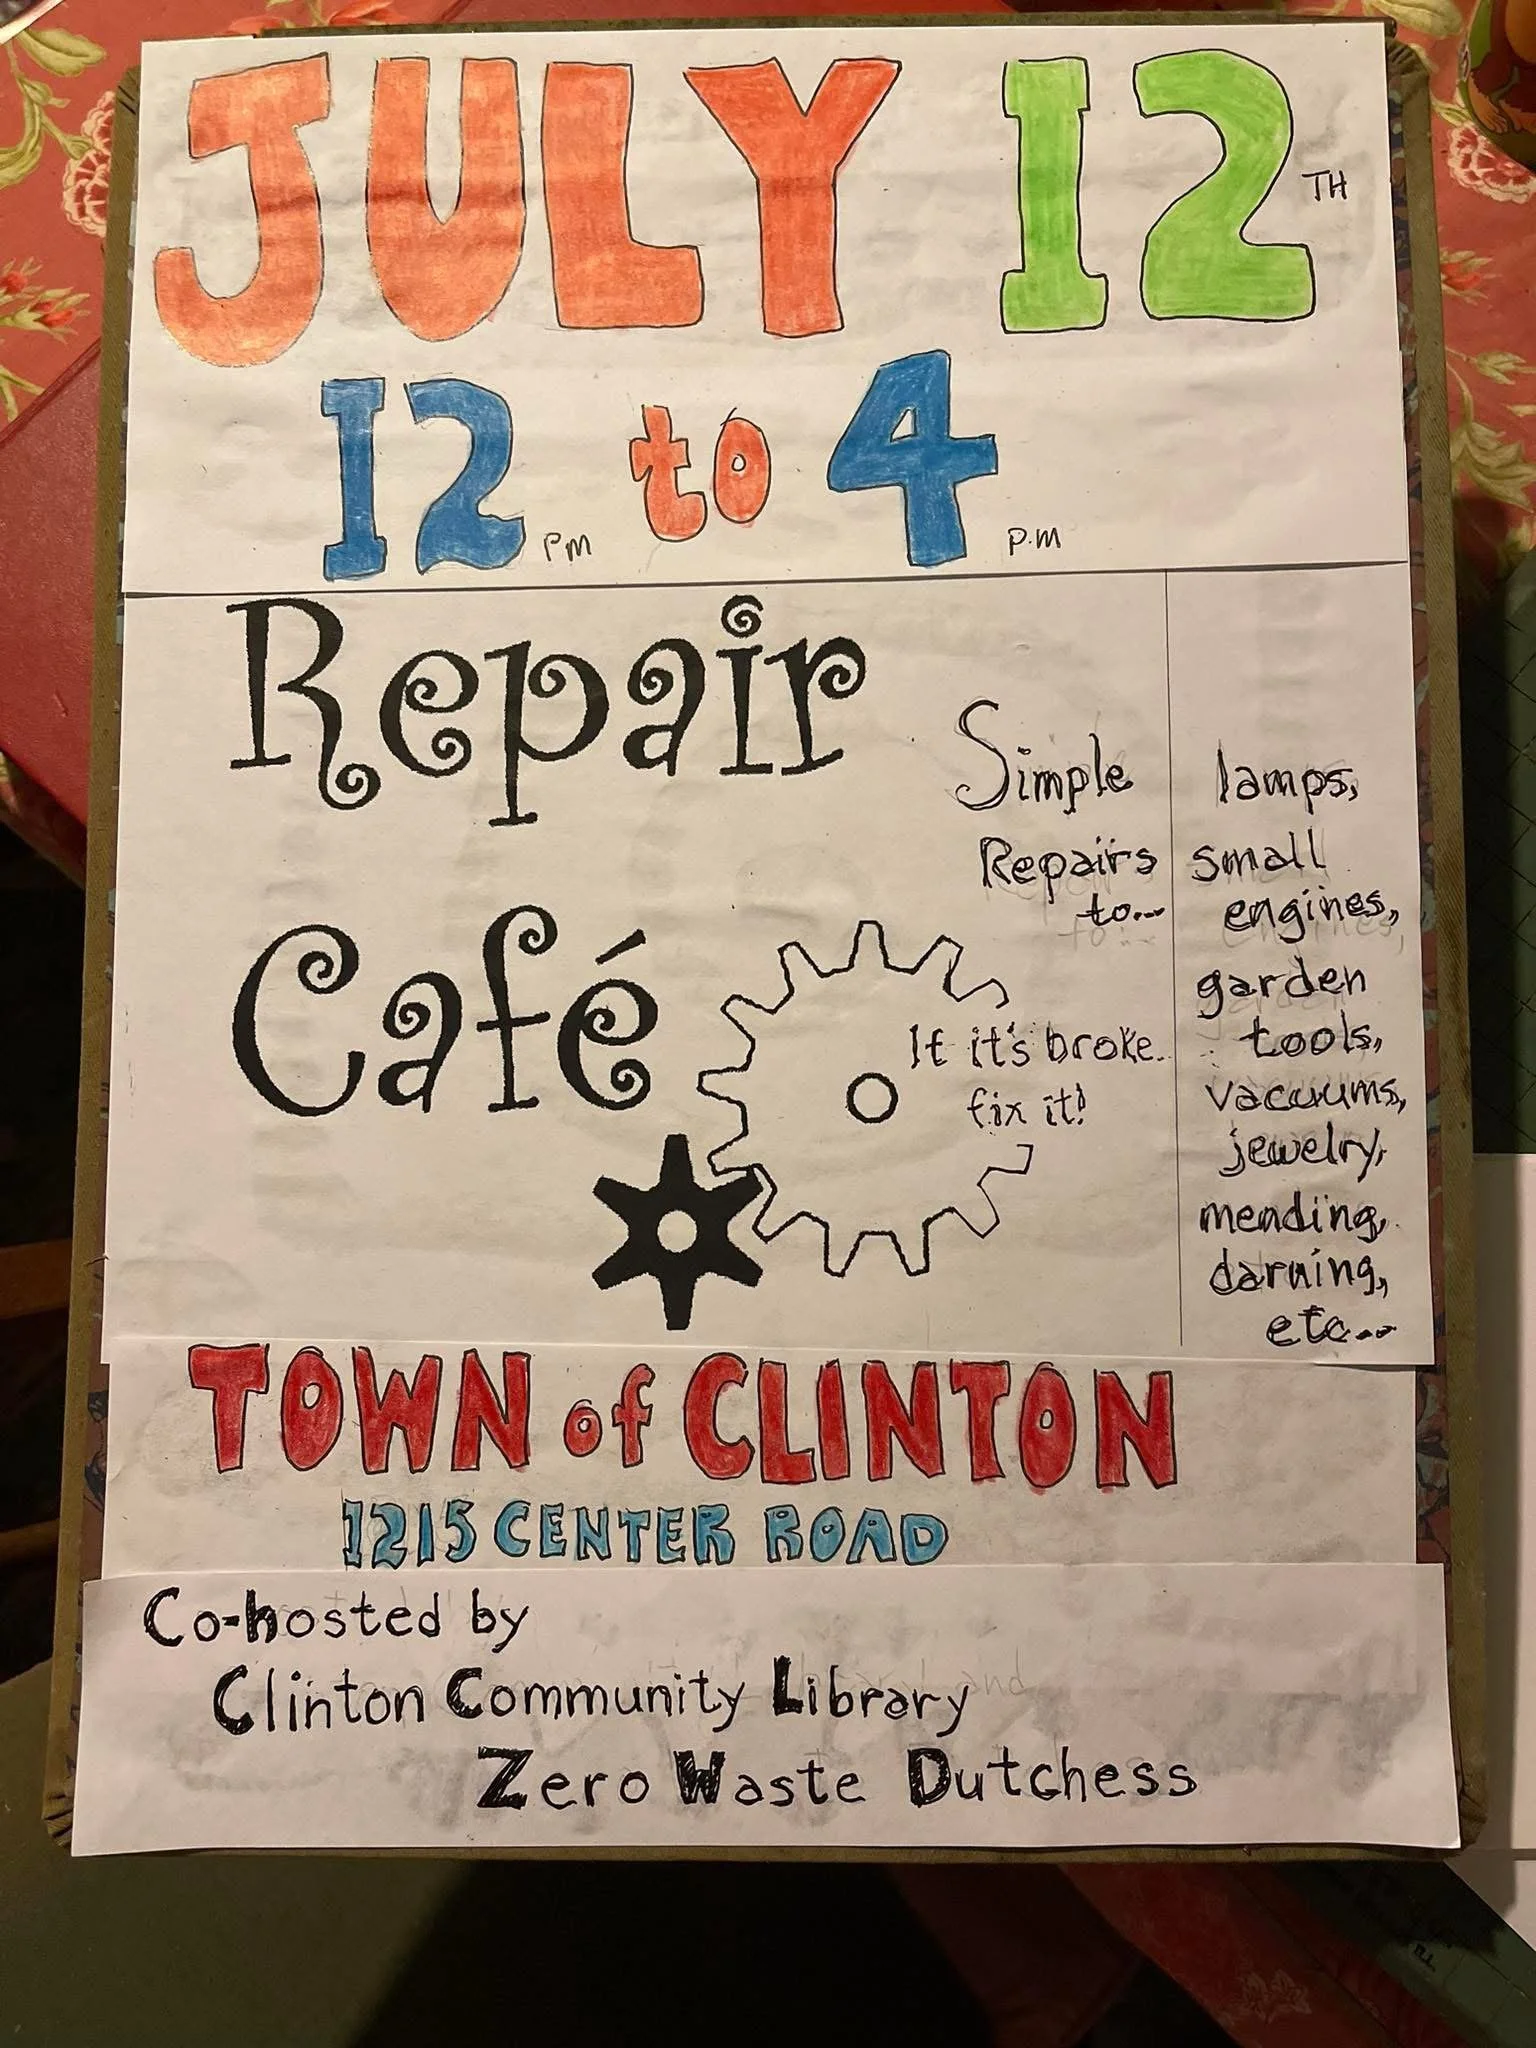 JULY 12TH
12 PM to 4 P.M
Repair
Café
Simple
Repairs
to...
If it's broke.
fix it!
lamps,
small
engines,
garden
tools,
vacuums,
jewelry,
mending,
darning,
etc...
TOWN of CLINTON
1215 CENTER ROAD
Co-hosted by
Clinton Community Library
Zero Waste Dutchess